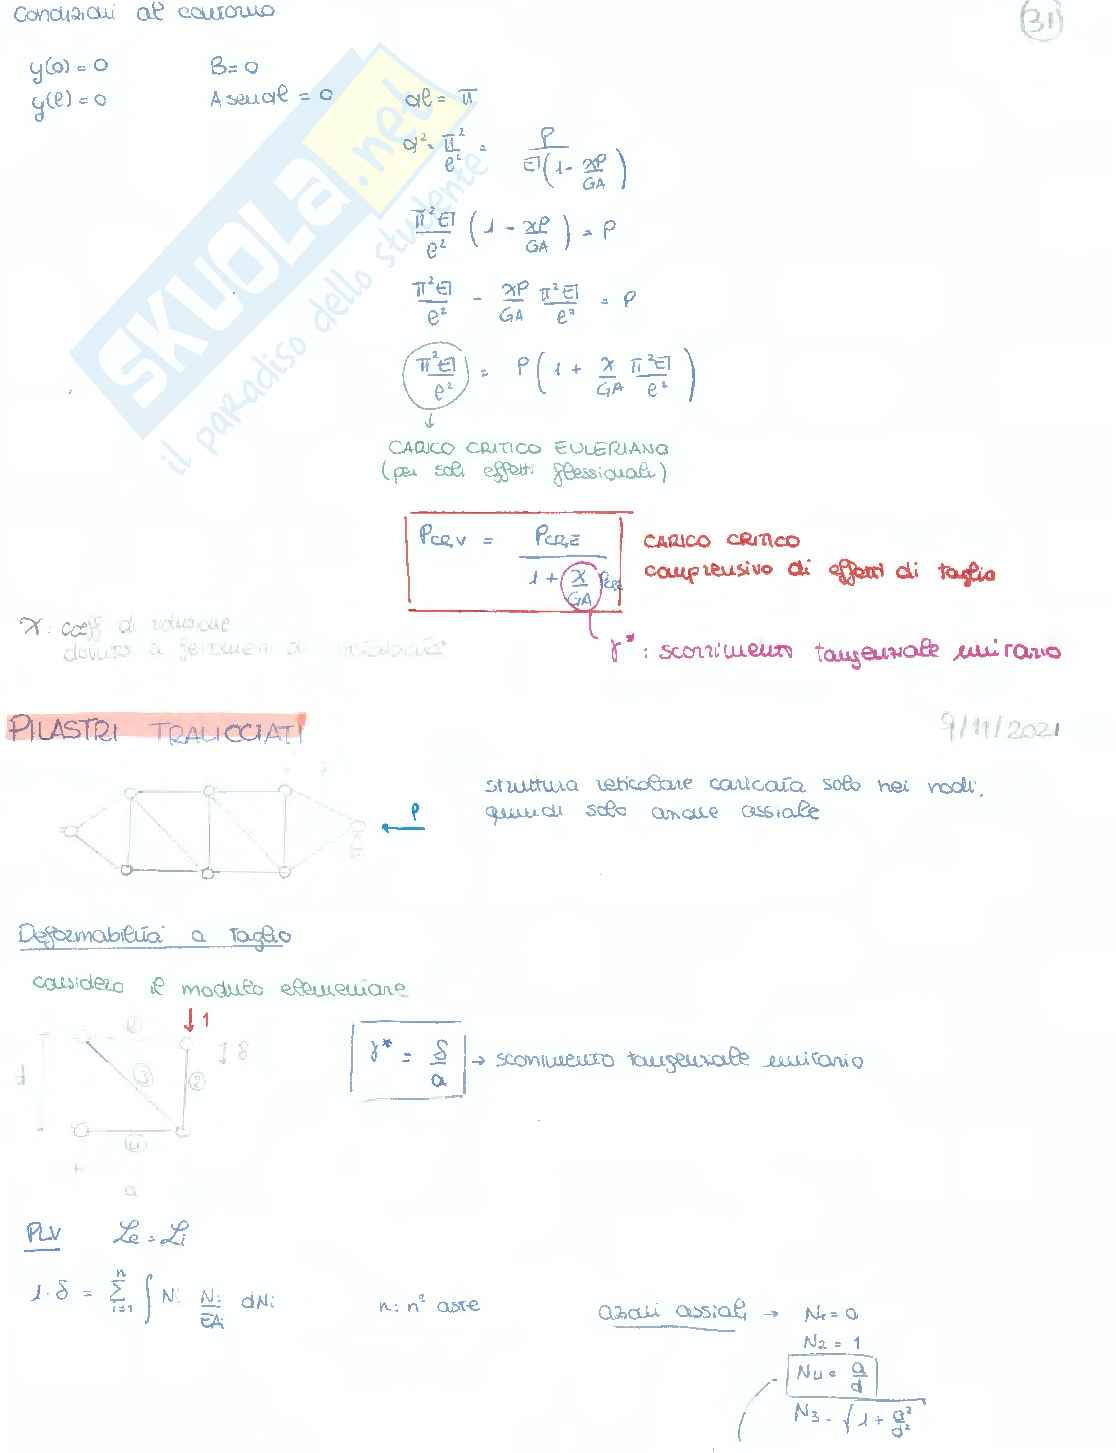 Condizioni al contorno
31
y(0) = 0 B = 0
y(l) = 0 A sen αl = 0 αl = π
α² = π²/l² = P / EI(1 - χP/GA)
π²EI/l² (1 - χP/GA) = P
π²EI/l² - χP/GA π²EI/l² = P
π²EI/l² = P(1 + χ/GA π²EI/l²)
CARICO CRITICO EULERIANO
(per soli effetti flessionali)
Pcr,V = Pcr,E / 1 + χ/GA Pcr,E
CARICO CRITICO
comprensivo di effetti di taglio
χ: coeff di riduzione
dovuto a fenomeni di
γ*: scorrimento tangenziale unitario
PILASTRI TRALICCIATI
9/11/2021
struttura reticolare caricata solo nei nodi,
quindi solo azione assiale
P
Deformabilità a taglio
considero il modulo elementare
1
δ
d
③
②
④
a
γ* = δ/a → scorrimento tangenziale unitario
PLV Le = Li
1·δ = Σ i=1 n ∫ Ni Ni/EAi dNi
n: n° aste
azioni assiali → N1 = 0
N2 = 1
N4 = a/d
N3 = √1 + a²/d²
SKUOLA.net
il paradiso dello studente